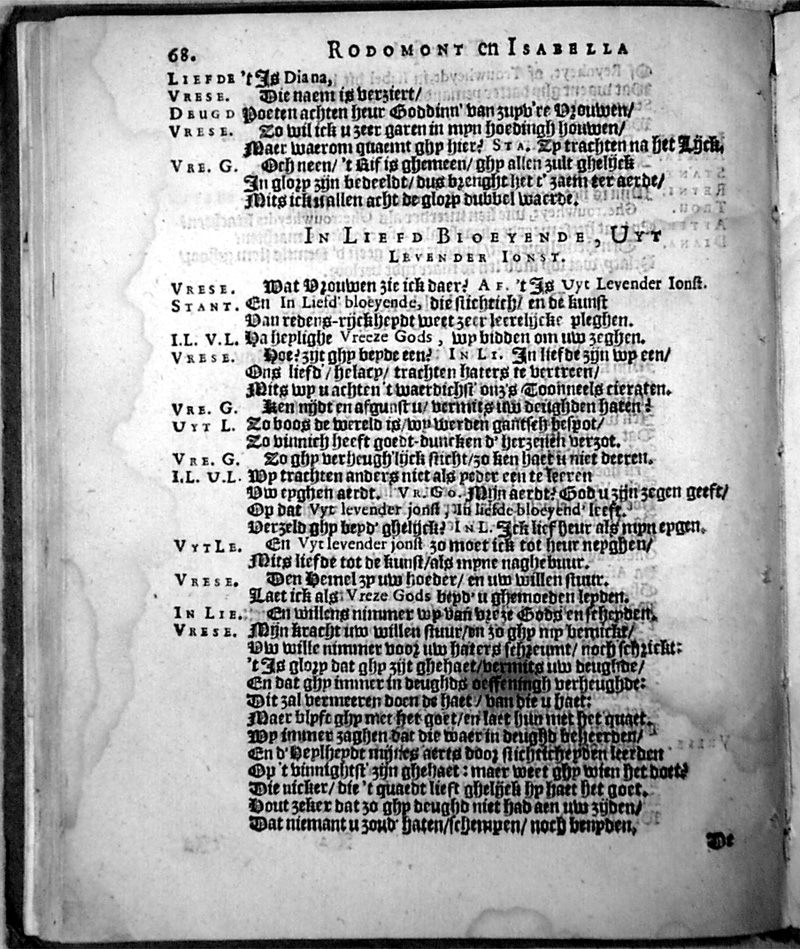 68. RODOMONT en ISABELLA
LIEFDE 't Is Diana,
VRESE. Die naem is verziert/
DEUGD Poeten achten heur Goddinn' van zupv're Vrouwen/
VRESE. Zo wil ick u zeer garen in mijn hoedingh houwen/
Maer waerom quaemt ghy hier? STA. Zy trachten na het Lijck.
VRE. G. Och neen/ 't Kif is ghemeen/ ghy allen zult ghelijck
In glory zijn bedeeldt/ dus brenght het t' zaem ter aerde/
Mits ick u allen acht de glory dubbel waerde.
IN LIEFD BLOEYENDE, UYT
LEVENDER IONST.
VRESE. Wat Vrouwen zie ick daer? AF. 't Is Uyt Levender Ionst.
STANT. En In Liefd' bloeyende, die stichtich/ en de kunst
Van redens-rijckheydt weet zeer leerelijcke pleghen.
I.L. V.L. Ha heylighe Vreeze Gods, wy bidden om uw zeghen.
VRESE. Hoe? zijt ghy beyde een? IN LI. In liefde zijn wy een/
Ons liefd'/ helacy/ trachten haters te vertreen/
Mits wy u achten 't waerdichst' onz's Toonneels cieraten.
VRE. G. Ken nijdt en afgunst u/ vermits uw deughden haten?
UYT L. Zo boos de wereld is/ wy werden gantsch bespot/
Zo vinnich heeft goedt-duncken d' herzenen verzot.
VRE. G. Zo ghy verheugh'lijck sticht/ zo ken haet u niet deeren.
I.L. U.L. Wy trachten anders niet als yeder een te leeren
Uw eyghen aerdt. VR. GO. Mijn aerdt? God u zijn zegen geeft/
Op dat Uyt levender jonst, In liefde bloeyend' leeft.
Verzeld ghy beyd' ghelijck? IN L. Ick lief heur als mijn eygen.
VYT LE. En Uyt levender jonst zo moet ick tot heur neyghen/
Mits liefde tot de kunst/ als mijne naghebuur.
VRESE. Den Hemel zy uw hoeder/ en uw willen stuur.
Laet ick als Vreeze Gods beyd' u ghemoeden leyden.
IN LIE. En willens nimmer wy van vreze Gods en scheyden.
VRESE. Mijn kracht uw willen stuur/ en zo ghy my vernickt/
Uw wille nimmer voor uw haters schreumt/ noch schrickt:
't Is glory dat ghy zijt ghehaet/ vermits uw deughde/
En dat ghy immer in deughds oeffeningh verheughde:
Dit zal vermeeren doen de haet/ van die u haet:
Maer blyft ghy met het goet/ en laet hun met het quaet.
Wy immer zaghen dat die waer in deughd beheerden/
En d' Heylheydt mijnes aerts door stichticheyden leerden
Op 't vinnightst' zijn ghehaet: maer weet ghy wien het doet?
Die nicker/ die 't quaedt lieft ghelijck hy haet het goet.
Hout zeker dat zo ghy deughd niet had aen uw zijden/
Dat niemant u zoud' haten/ schempen/ noch benyden.
De